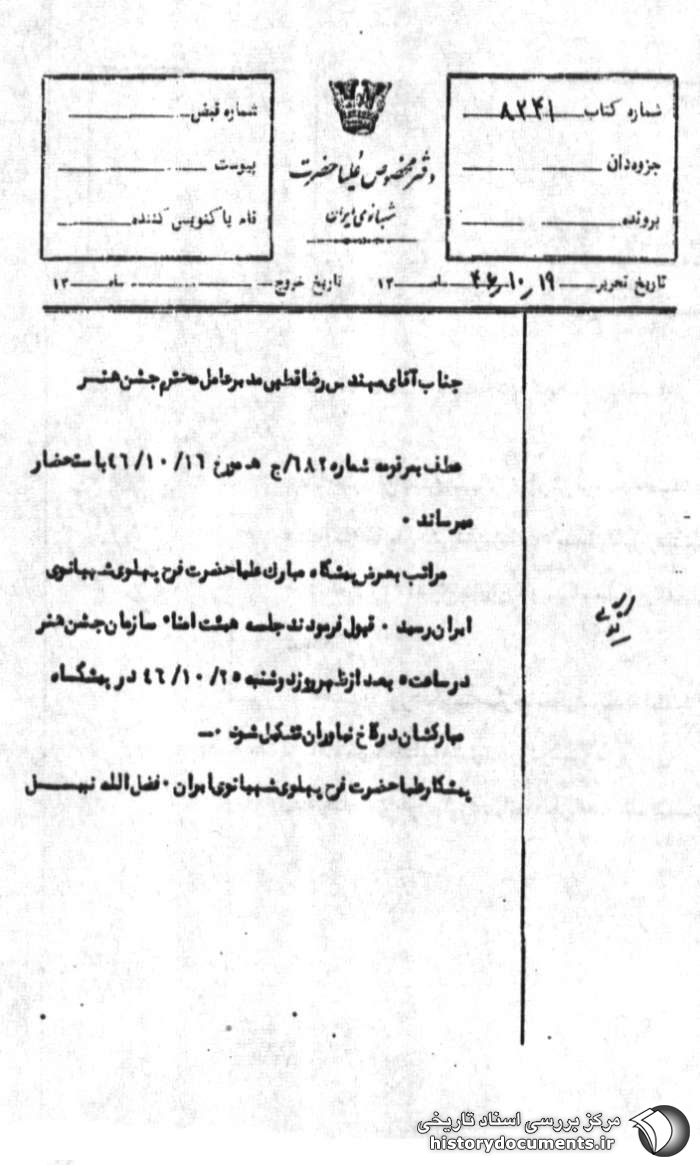 شماره کتاب ۸۲۴۱
جزوه‌دان
پرونده
دفتر مخصوص علیاحضرت
شهبانوی ایران
شماره قبض
پیوست
نام پاکنویس کننده
تاریخ تحریر ۱۹ ر ۱۰ ر ۴۶ ماه ۱۳
تاریخ خروج ماه ۱۳
جناب آقای مهندس رضا قطبی مدیرعامل محترم جشن هنر
عطف بمرقومه شماره ۶۸۲/ج هـ مورخ ۴۶/۱۰/۱۶ باستحضار
میرساند ۰
مراتب بعرض پیشگاه مبارک علیاحضرت فرح پهلوی شهبانوی
ایران رسید ۰ قبول فرمودند جلسه هیئت امناء سازمان جشن هنر
در ساعت ۵ بعد از ظهر روز دوشنبه ۴۶/۱۰/۲۵ در پیشگاه
مبارکشان در کاخ نیاوران تشکیل شود ۰ــ
پیشکار علیاحضرت فرح پهلوی شهبانوی ایران ۰ فضل الله نبیل
مرکز بررسی اسناد تاریخی
historydocuments.ir